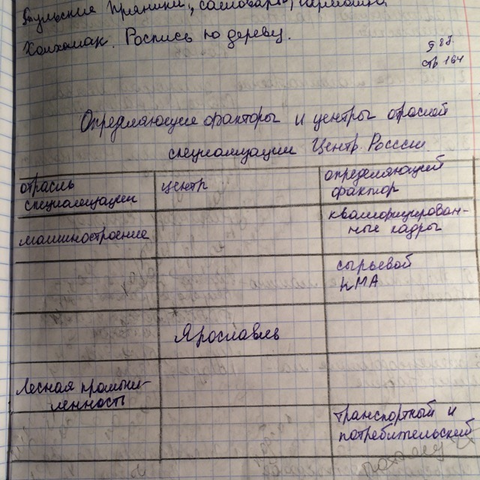 Тульские пряники, самовары, гармошка
Хохлома. Роспись по дереву.
§ 28.
стр 164
Определяющие факторы и центры отраслей
специализации Центр. России
отрасль специализации
центр
определяющий фактор
машиностроение
квалифицирован-
ные кадры
сырьевой
КМА
Ярославль
Лесная промыш-
ленность
транспортный и
потребительский